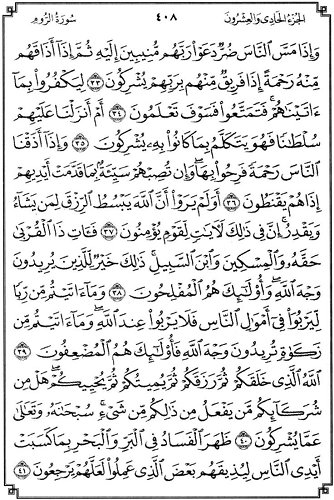 الجزء الحادى والعشرون ٤٠٨ سورة الروم
وَإِذَا مَسَّ ٱلنَّاسَ ضُرٌّ دَعَوْا۟ رَبَّهُم مُّنِيبِينَ إِلَيْهِ ثُمَّ إِذَآ أَذَاقَهُم
مِّنْهُ رَحْمَةً إِذَا فَرِيقٌ مِّنْهُم بِرَبِّهِمْ يُشْرِكُونَ ٣٣ لِيَكْفُرُوا۟ بِمَآ
ءَاتَيْنَٰهُمْ ۚ فَتَمَتَّعُوا۟ فَسَوْفَ تَعْلَمُونَ ٣٤ أَمْ أَنزَلْنَا عَلَيْهِمْ
سُلْطَٰنًا فَهُوَ يَتَكَلَّمُ بِمَا كَانُوا۟ بِهِۦ يُشْرِكُونَ ٣٥ وَإِذَآ أَذَقْنَا
ٱلنَّاسَ رَحْمَةً فَرِحُوا۟ بِهَا ۖ وَإِن تُصِبْهُمْ سَيِّئَةٌۢ بِمَا قَدَّمَتْ أَيْدِيهِمْ
إِذَا هُمْ يَقْنَطُونَ ٣٦ أَوَلَمْ يَرَوْا۟ أَنَّ ٱللَّهَ يَبْسُطُ ٱلرِّزْقَ لِمَن يَشَآءُ
وَيَقْدِرُ ۚ إِنَّ فِى ذَٰلِكَ لَءَايَٰتٍ لِّقَوْمٍ يُؤْمِنُونَ ٣٧ فَـَٔاتِ ذَا ٱلْقُرْبَىٰ
حَقَّهُۥ وَٱلْمِسْكِينَ وَٱبْنَ ٱلسَّبِيلِ ۚ ذَٰلِكَ خَيْرٌ لِّلَّذِينَ يُرِيدُونَ
وَجْهَ ٱللَّهِ ۖ وَأُو۟لَٰٓئِكَ هُمُ ٱلْمُفْلِحُونَ ٣٨ وَمَآ ءَاتَيْتُم مِّن رِّبًا
لِّيَرْبُوَا۟ فِىٓ أَمْوَٰلِ ٱلنَّاسِ فَلَا يَرْبُوا۟ عِندَ ٱللَّهِ ۖ وَمَآ ءَاتَيْتُم مِّن
زَكَوٰةٍ تُرِيدُونَ وَجْهَ ٱللَّهِ فَأُو۟لَٰٓئِكَ هُمُ ٱلْمُضْعِفُونَ ٣٩
ٱللَّهُ ٱلَّذِى خَلَقَكُمْ ثُمَّ رَزَقَكُمْ ثُمَّ يُمِيتُكُمْ ثُمَّ يُحْيِيكُمْ ۖ هَلْ مِن
شُرَكَآئِكُم مَّن يَفْعَلُ مِن ذَٰلِكُم مِّن شَىْءٍ ۚ سُبْحَٰنَهُۥ وَتَعَٰلَىٰ
عَمَّا يُشْرِكُونَ ٤٠ ظَهَرَ ٱلْفَسَادُ فِى ٱلْبَرِّ وَٱلْبَحْرِ بِمَا كَسَبَتْ
أَيْدِى ٱلنَّاسِ لِيُذِيقَهُم بَعْضَ ٱلَّذِى عَمِلُوا۟ لَعَلَّهُمْ يَرْجِعُونَ ٤١